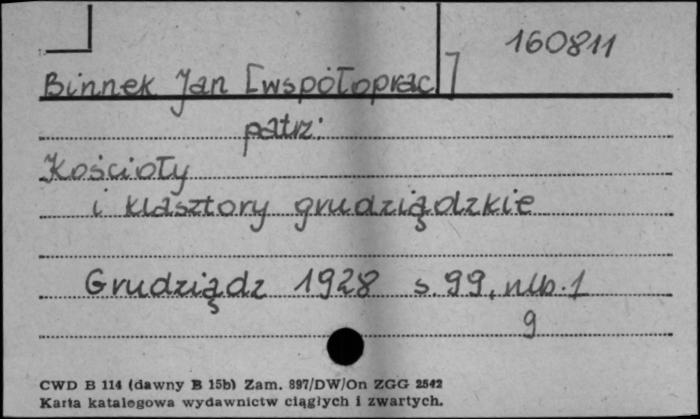 160811
Binnek Jan [współoprac]
patrz:
Kościoły
i klasztory grudziądzkie
Grudziądz 1928 s. 99, nlb. 1
9
CWD B 114 (dawny B 15b) Zam. 897/DW/On ZGG 2542
Karta katalogowa wydawnictw ciągłych i zwartych.